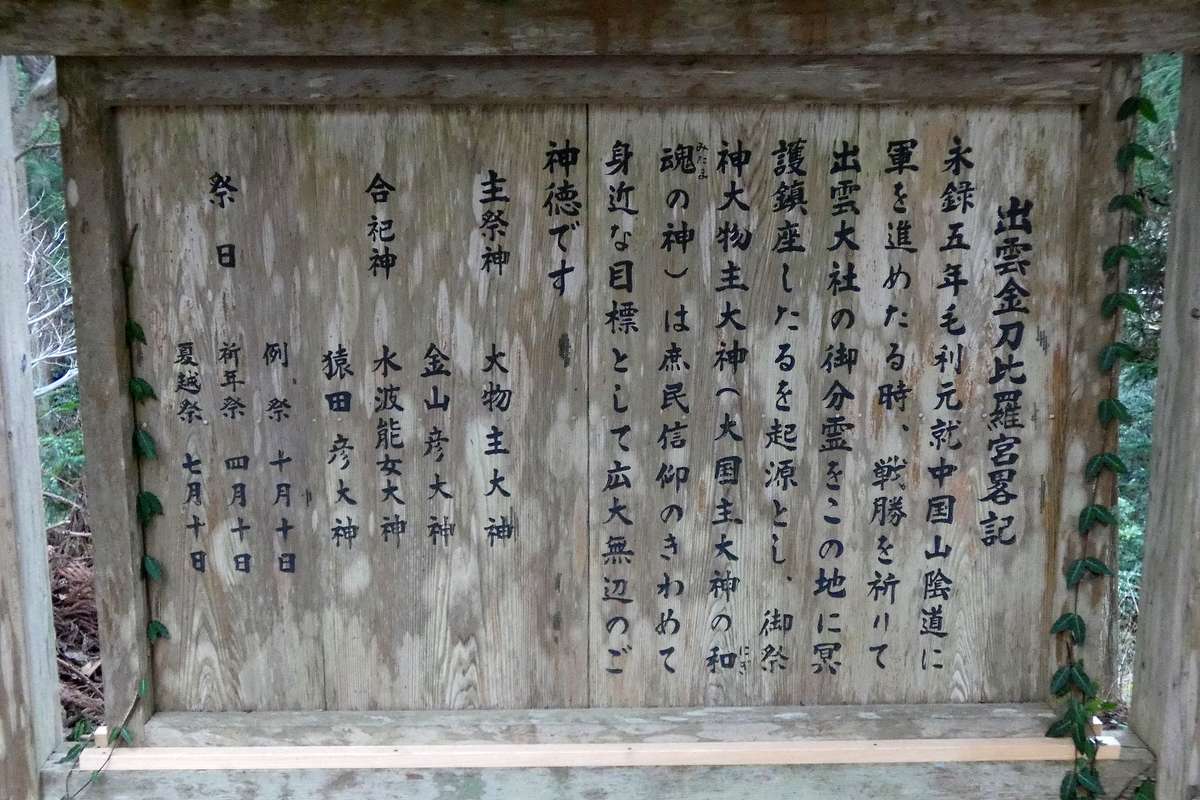 出雲金刀比羅宮畧記
永録五年毛利元就中国山陰道に
軍を進めたる時、戦勝を祈りて
出雲大社の御分霊をこの地に冥
護鎮座したるを起源とし、御祭
神大物主大神(大国主大神の和にぎ
魂みたまの神)は庶民信仰のきわめて
身近な目標として広大無辺のご
神徳です
主祭神 大物主大神
金山彦大神
合祀神 水波能女大神
猿田彦大神
例祭 十月十日
祭日 祈年祭 四月十日
夏越祭 七月十日